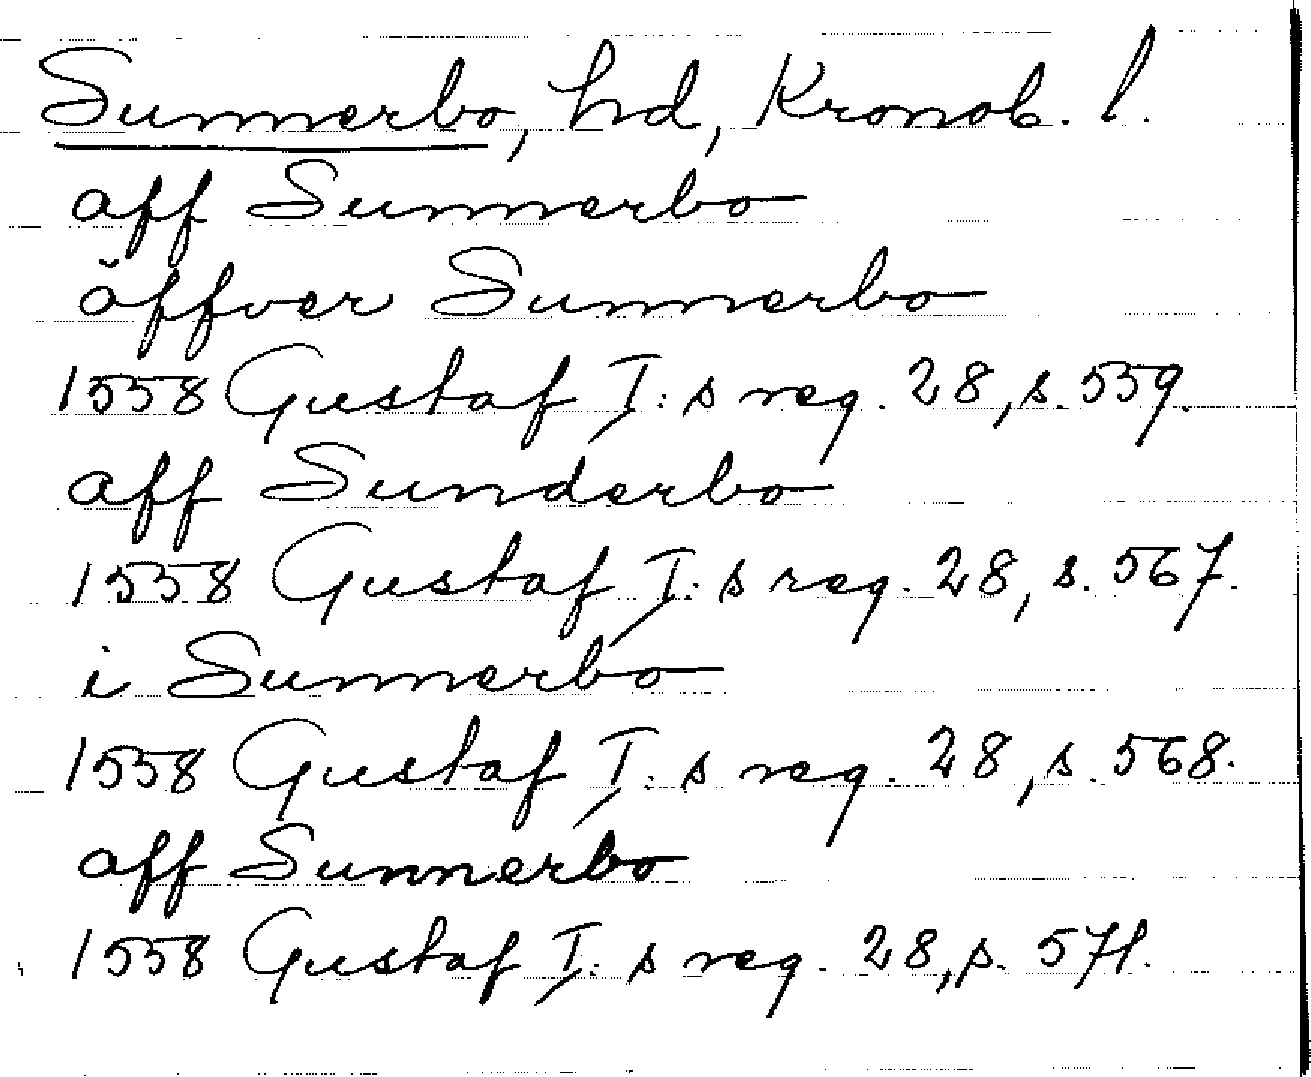 Sunnerbo, hd, Kronob. l.
aff Sunnerbo
öffver Sunnerbo
1558 Gustaf I:s reg. 28, s. 559.
aff Sunderbo
1558 Gustaf I:s reg. 28, s. 567.
i Sunnerbo
1558 Gustaf I:s reg. 28, s. 568.
aff Sunnerbo
1558 Gustaf I:s reg. 28, s. 571.